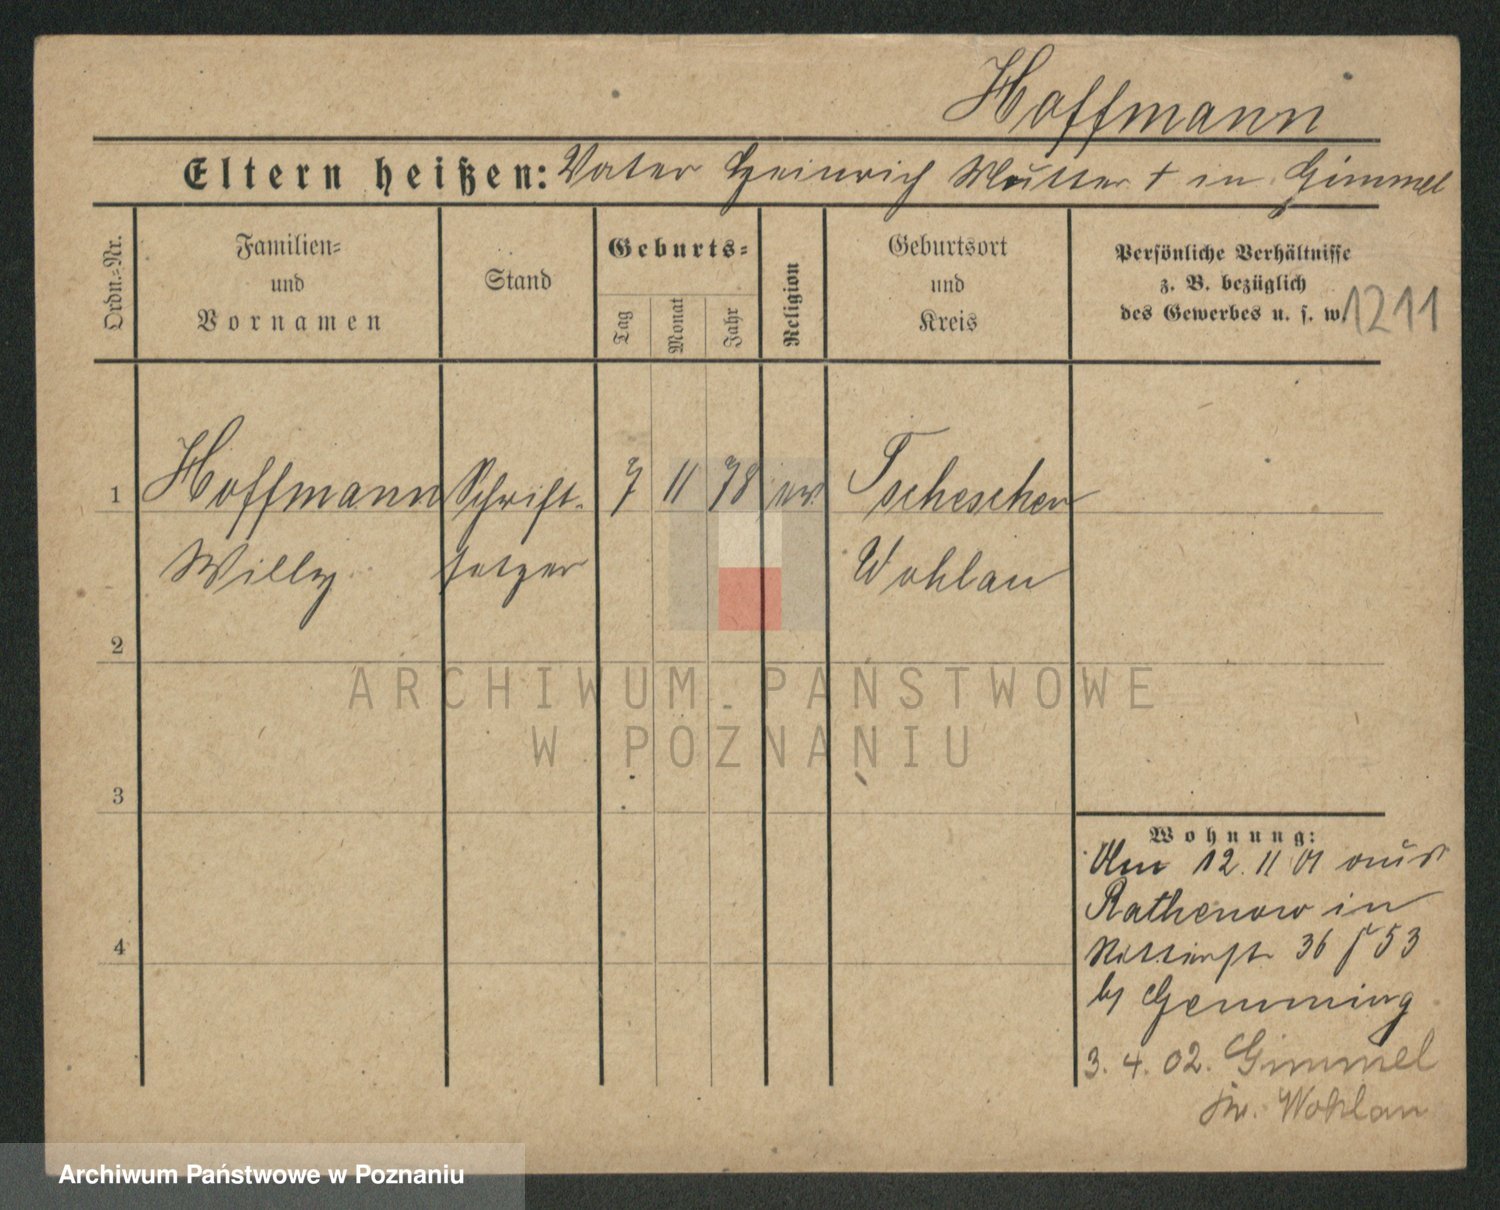 Hoffmann
Eltern heißen: Vater Heinrich Mutter † in Gimmel
Ordn.=Nr.
Familien=
und
Vornamen
Stand
Geburts=
Tag
Monat
Jahr
Religion
Geburtsort
und
Kreis
Persönliche Verhältnisse
z. B. bezüglich
des Gewerbes u. s. w.
1211
1 Hoffmann Schrift- 7 11 78 ev. Tscheschen
Willy setzer Wohlau
2
3
4
ARCHIWUM PAŃSTWOWE
W POZNANIU
Wohnung:
Am 12. 11 01 aus
Rathenow in
36 53
b/ Gemming
3. 4. 02. Gimmel
Kr. Wohlau
Archiwum Państwowe w Poznaniu